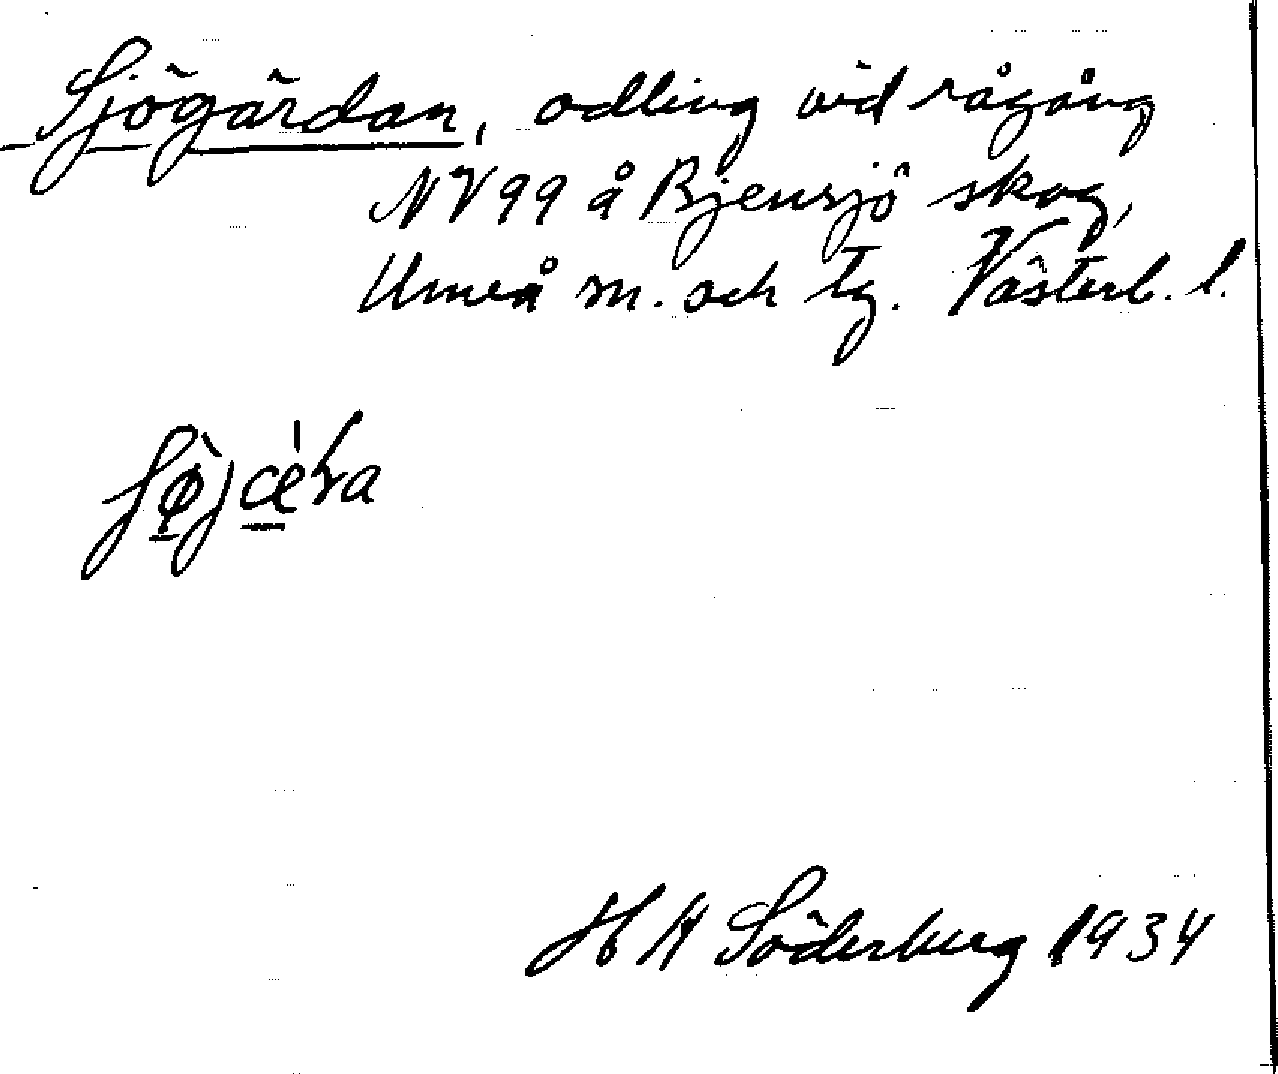 Sjögärdan, odling vid rågång
NV 99 å Bjensjö skog,
Umeå m. och tg. Västerb. l.
H A Söderberg 1934